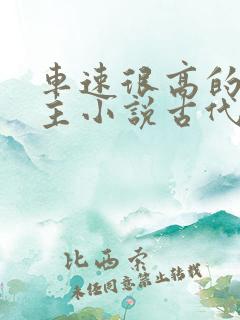 车速很高的
主小说古代
比西索
未经同意禁止转载